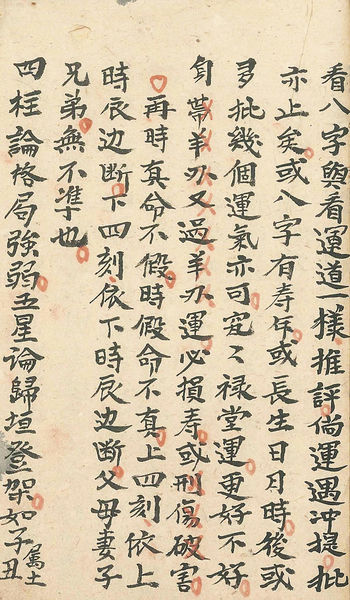 看八字與看運道一樣推評倘運遇冲提批
亦止矣或八字有寿年或長生日月時後或
多批幾個運氣亦可禄堂運更好不好
自帶羊刃又過羊刃運必損寿或刑傷破害
再時真命不假時假命不真上四刻依上
時辰边断下四刻依下時辰边断父母妻子
兄弟無不准也
四柱論格局強弱五星論歸垣登架如子丑屬土